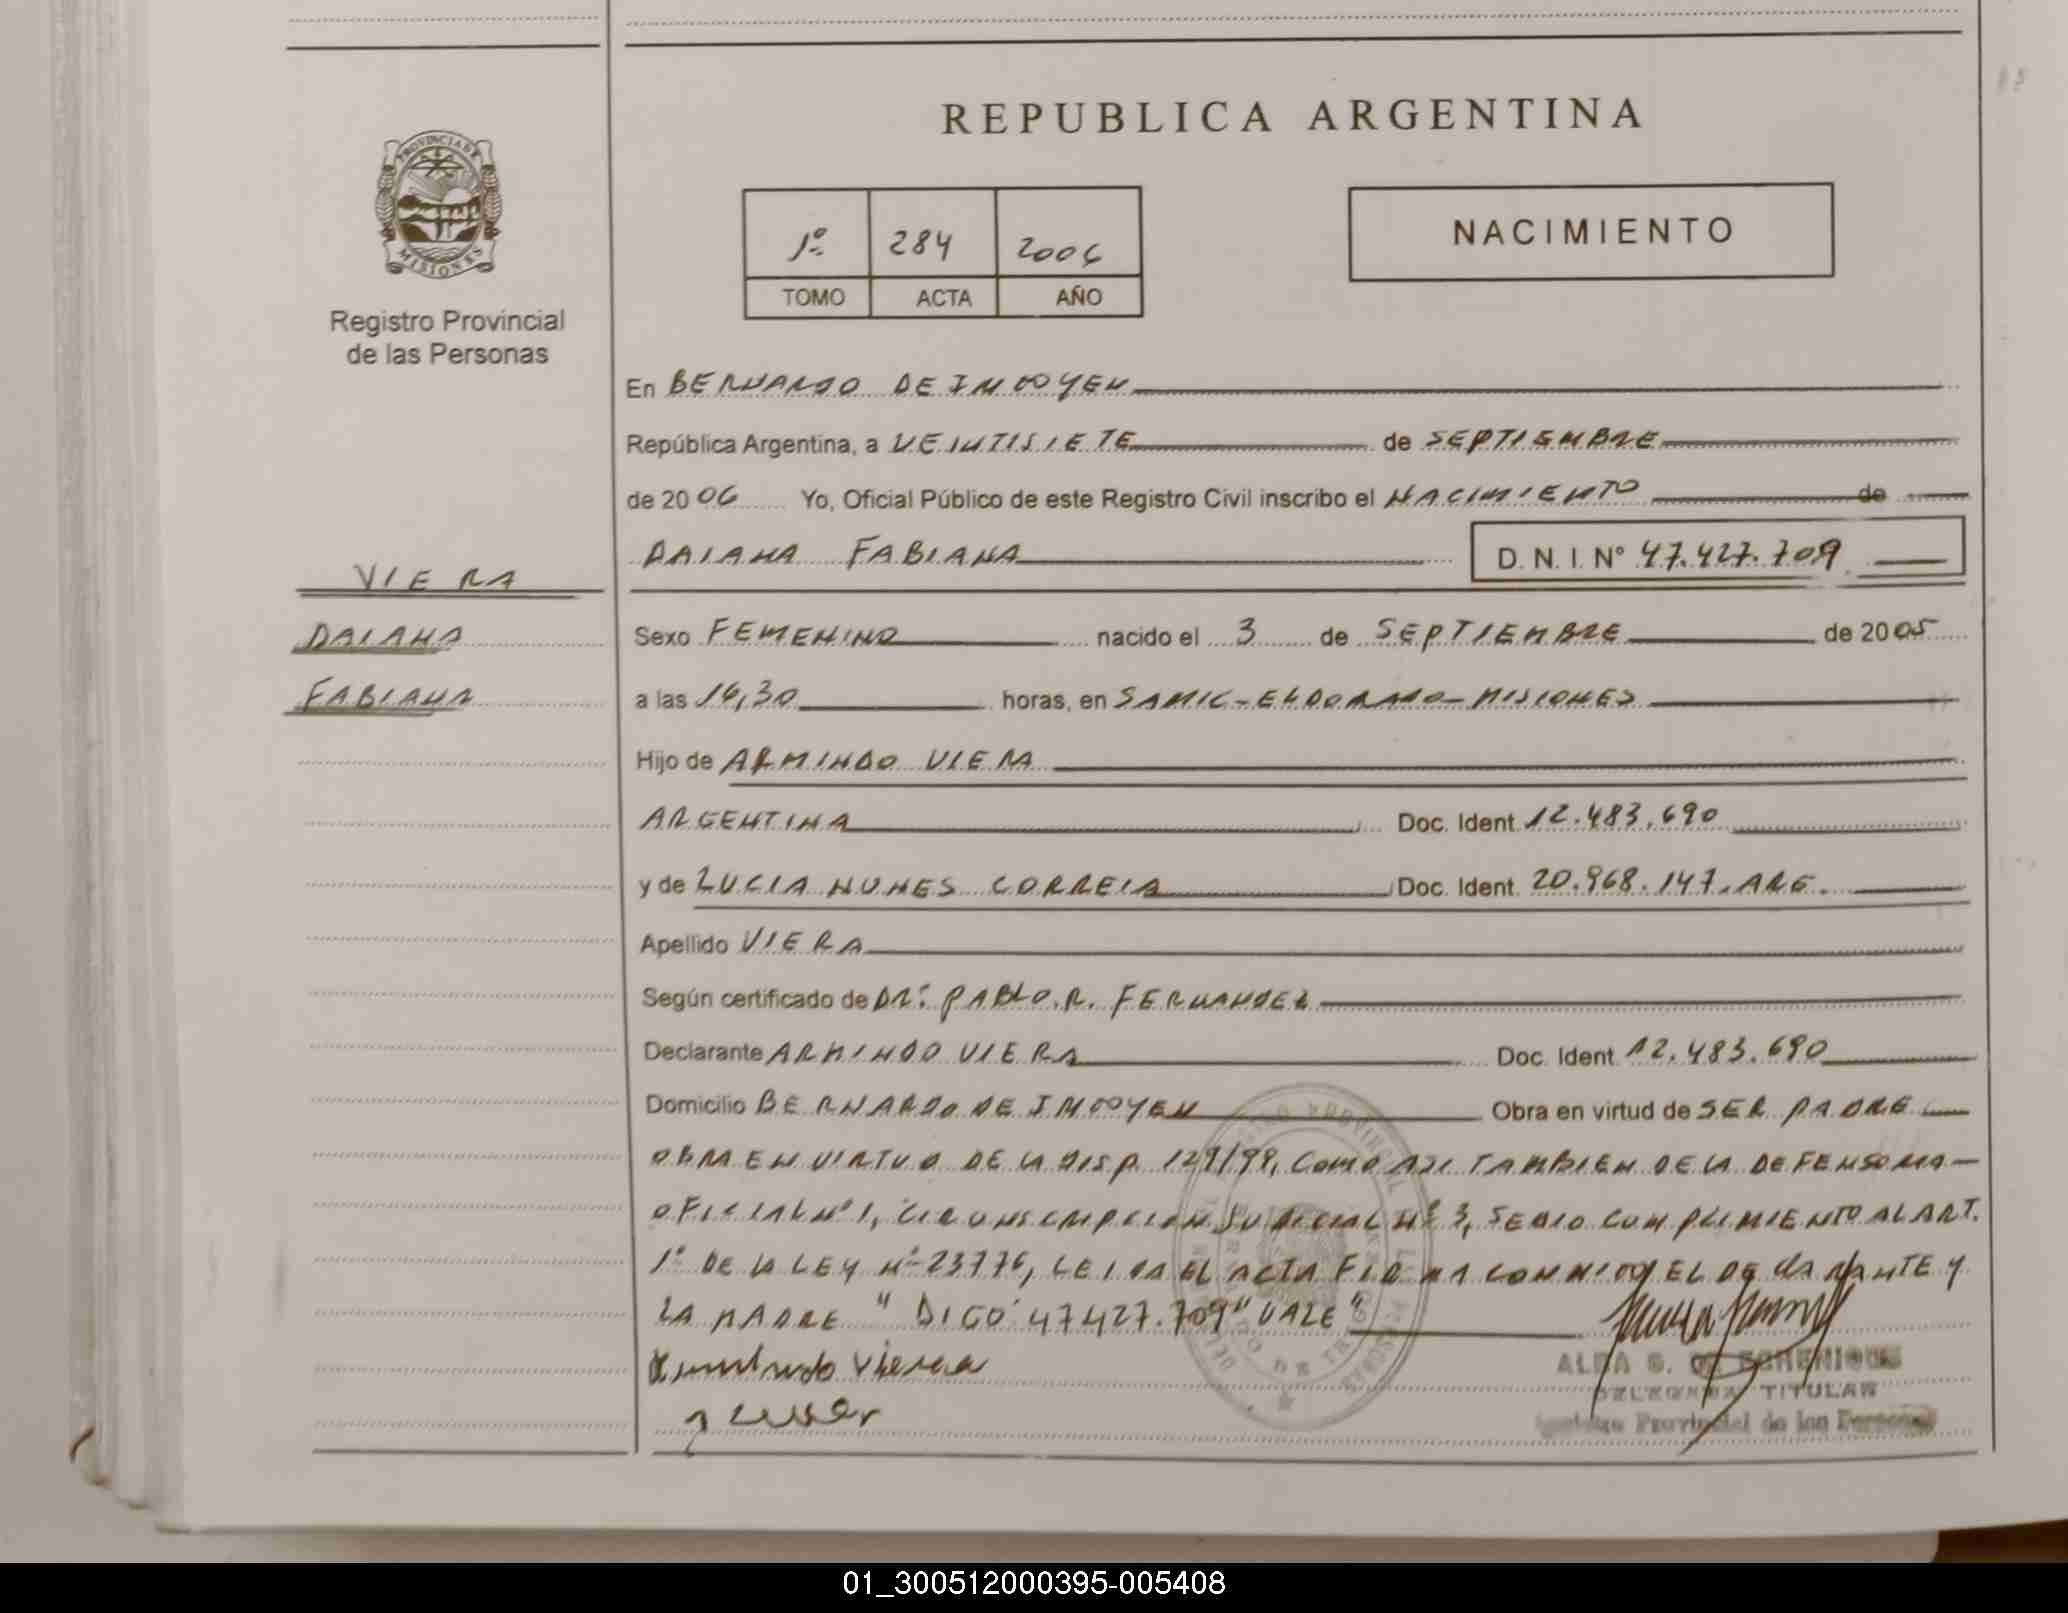 REPUBLICA ARGENTINA
PROVINCIA DE
MISIONES
Registro Provincial
de las Personas
1º 284 2006
TOMO ACTA AÑO
NACIMIENTO
En BERNARDO DE IRIGOYEN
República Argentina, a VEINTISIETE de SEPTIEMBRE
de 2006 Yo, Oficial Público de este Registro Civil inscribo el NACIMIENTO de
DAIANA FABIANA D. N. I. Nº 47.427.709
VIERA
DAIANA
FABIANA
Sexo FEMENINO nacido el 3 de SEPTIEMBRE de 2005
a las 16,30 horas, en SAMIC-ELDORADO-MISIONES
Hijo de ARMINDO VIERA
ARGENTINA Doc. Ident. 12.483.690
y de LUCIA NUNES CORREIA Doc. Ident. 20.968.147.ARG.
Apellido VIERA
Según certificado de DR: PABLO.R. FERNANDEZ
Declarante ARMINDO VIERA Doc. Ident. 12.483.690
Domicilio BERNARDO DE IRIGOYEN Obra en virtud de SER PADRE
OBRA EN VIRTUD DE LA DISP. 129/99, COMO ASI TAMBIEN DE LA DEFENSORIA
OFICIAL Nº 1, CIRCUNSCRIPCION JUDICIAL Nº 3, SE DIO CUMPLIMIENTO AL ART.
1º DE LA LEY Nº 23776, LEIDA EL ACTA FIRMA CONMIGO EL DECLARANTE Y
LA MADRE " DIGO 47427.709" VALE"
Armindo Viera
ALBA S. DE ECHENIQUE
DELEGADA TITULAR
Provincial de las Personas
01_300512000395-005408